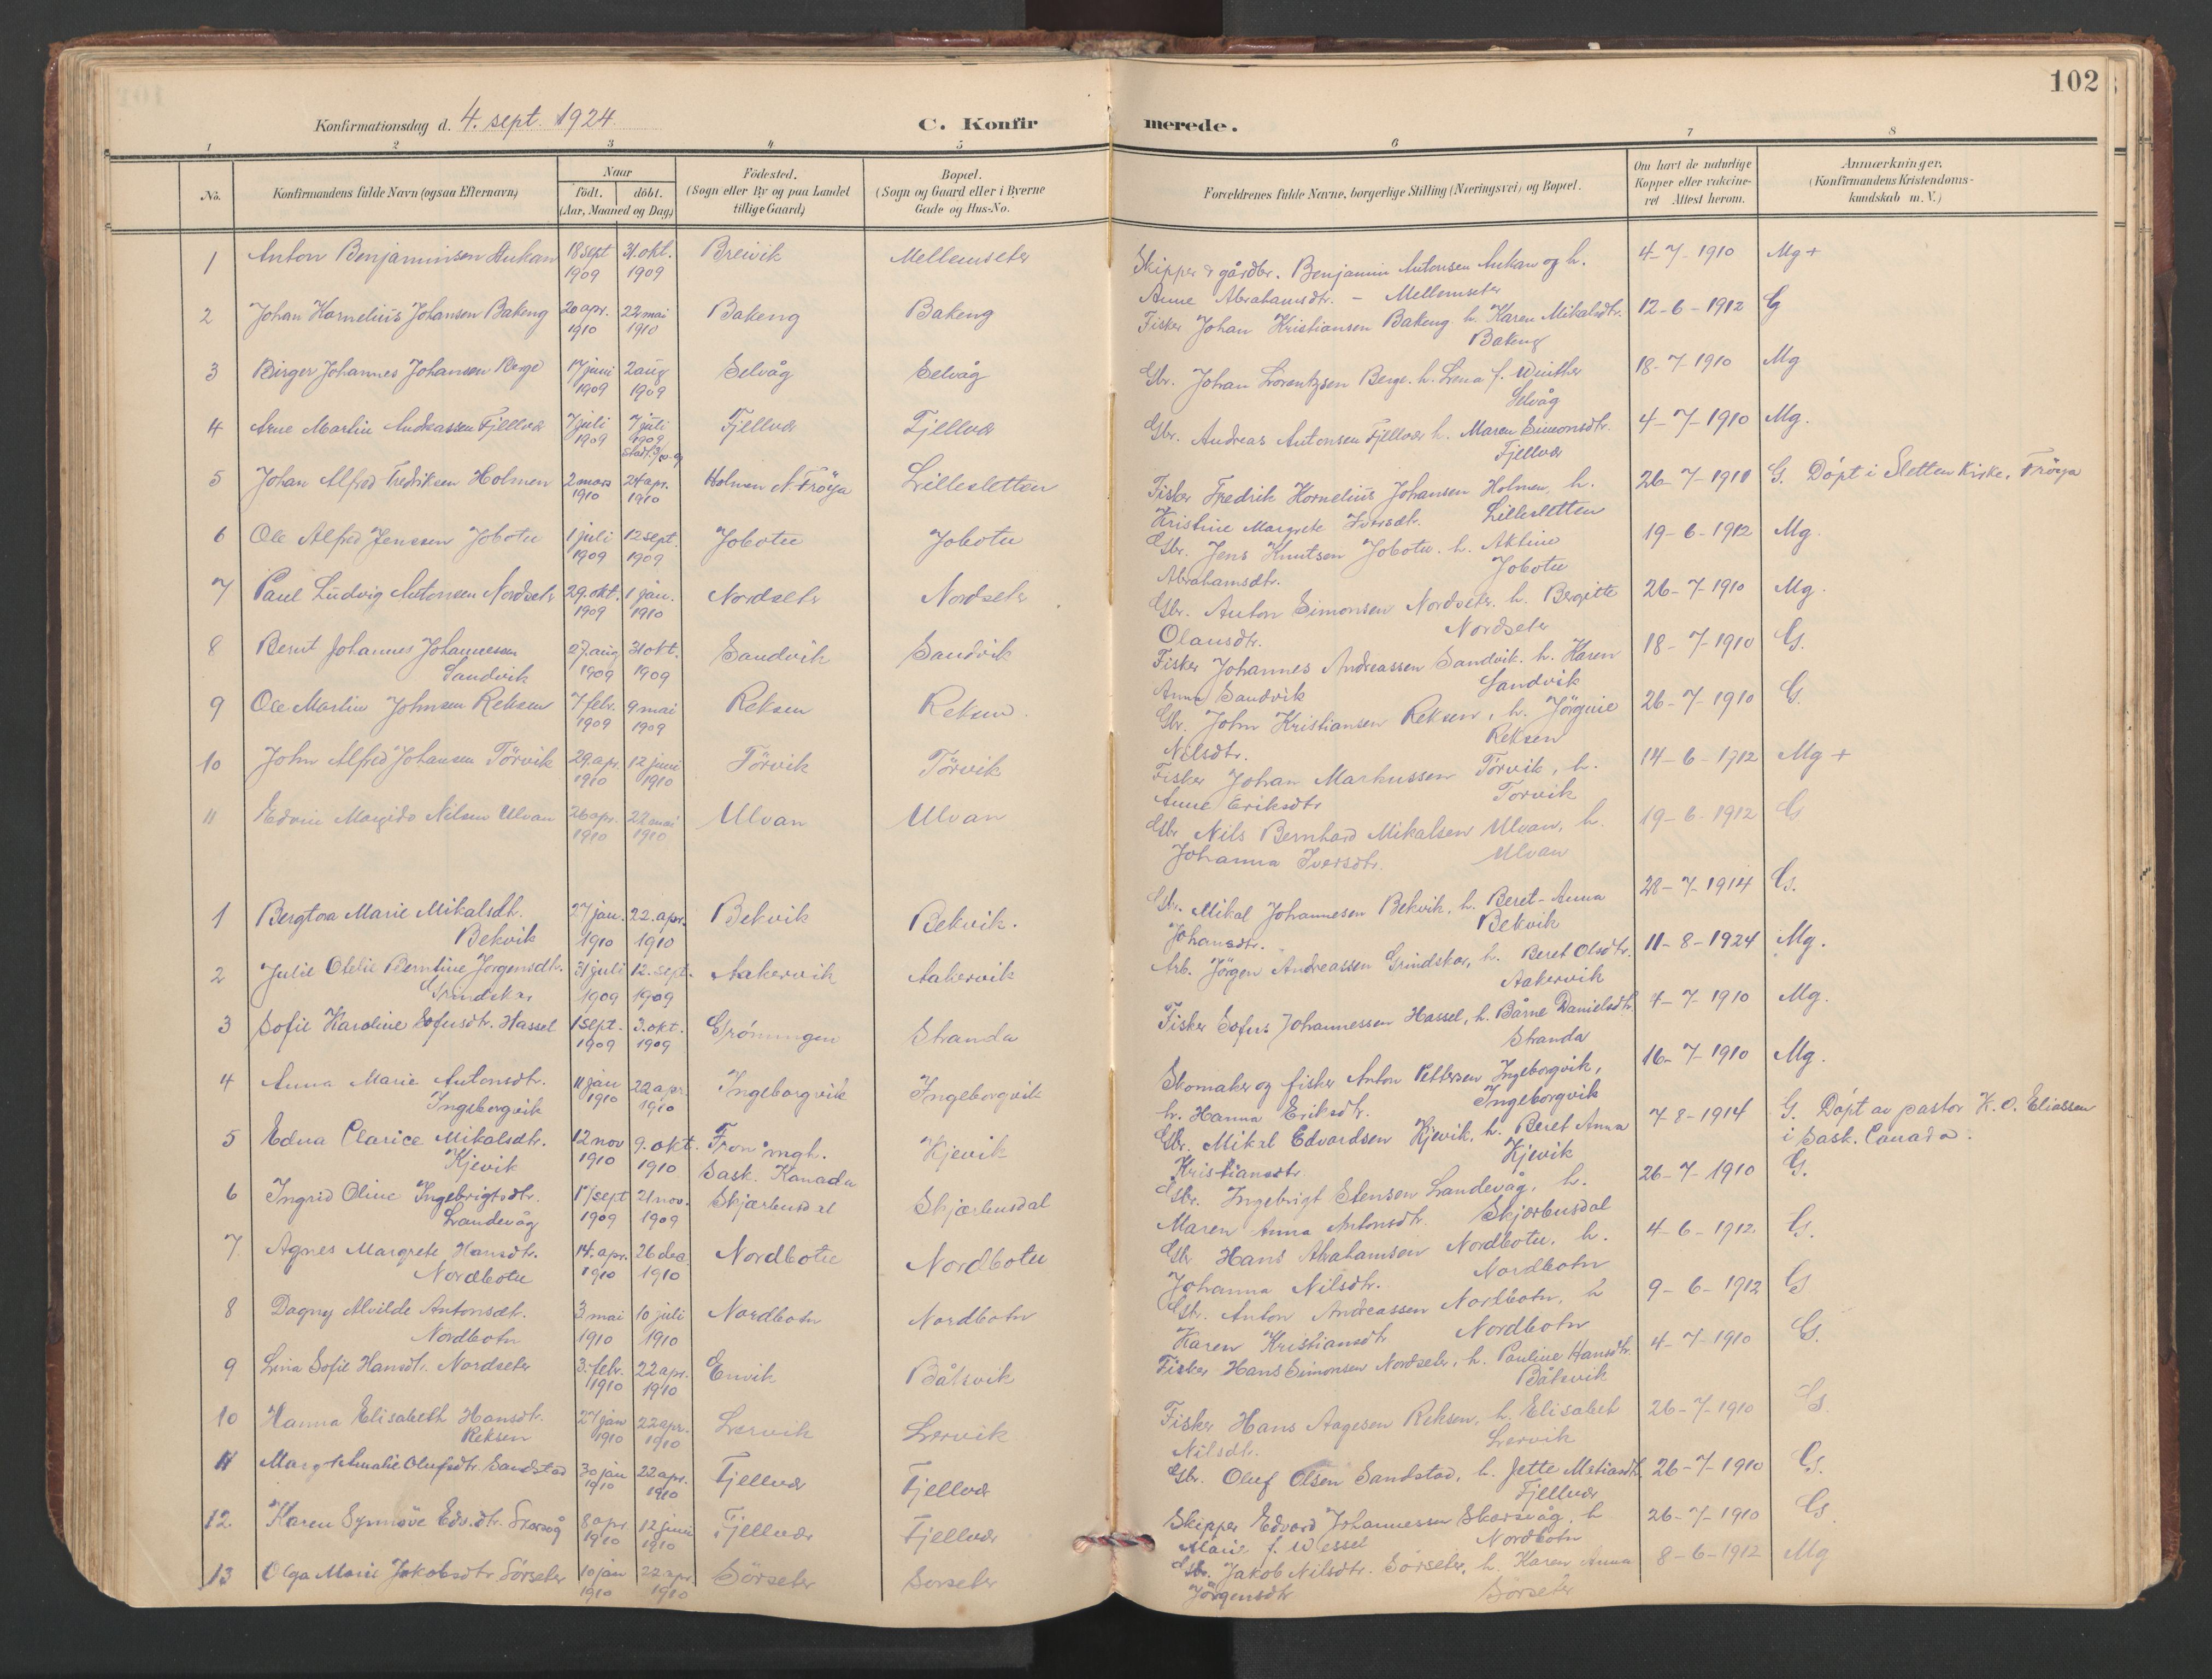 102
Konfirmationsdag d. 4. sept. 1924
C. Konfirmerede.
1 2 3 4 5 6 7 8
No. Konfirmandens fulde Navn (ogsaa Efternavn) Naar födt. döbt. (Aar, Maaned og Dag) Födested. (Sogn eller By og paa Landet tillige Gaard) Bopæl. (Sogn og Gaard eller i Byerne Gade og Hus-No. Forældrenes fulde Navne, borgerlige Stilling (Næringsvei) og Bopæl. Om havt de naturlige Kopper eller vakcineret Attest herom. Anmærkninger. (Konfirmandens Kristendomskundskab m. V.)
1 Anton Benjaminsen Aukan 18 sept 1909 31. okt. 1909 Breivik Mellemseter Skipper & gårdbr. Benjamin Antonsen Aukan og h. 4-7-1910 Mg +
Anne Abrahamsdtr. - Mellemseter
2 Johan Kornelius Johansen Bakeng 20 apr. 1910 22 mai 1910 Bakeng Bakeng Fisker Johan Kristiansen Bakeng h. Karen Mikalsdtr. 12-6-1912 G
Bakeng
3 Birger Johannes Johansen Berge 17 juni 1909 2 aug 1909 Selvåg Selvåg Gbr. Johan Lorentzsen Berge. h. Lena f. Winther 18-7-1910 Mg
Selvåg
4 Arne Martin Andreassen Fjellvær 7 juli 1909 7 juli 1909 Fjellvær Fjellvær Gbr. Andreas Antonsen Fjellvær h. Maren Simonsdtr. 4-7-1910 Mg.
Fjellvær
5 Johan Alfred Fredriksen Holmen 2 mars 1910 24 apr. 1910 Holmen N. Fröya Lillesletten Fisker Fredrik Kornelius Johansen Holmen, h. 26-7-1910 G. Döpt i Sletten Kirke, Fröya
Kristine Margrete Iversdtr. Lillesletten
6 Ole Alfred Jenssen Jobotn 1 juli 1909 12 sept. 1909 Jobotn Jobotn Gbr. Jens Knutsen Jobotn. h. Aktine 19-6-1912 Mg.
Abrahamsdtr. Jobotn
7 Paul Ludvig Antonsen Nordseter 29. okt. 1909 1 jan. 1910 Nordseter Nordseter Gbr. Anton Simonsen Nordseter. h. Bergitte 26-7-1910 Mg.
Olausdtr. Nordseter
8 Bernt Johannes Johannessen 27. aug 1909 31 okt. 1909 Sandvik Sandvik Fisker Johannes Andreassen Sandvik. h. Karen 18-7-1910 G.
Sandvik Anna Sandvik Sandvik
9 Ole Martin Johnsen Reksen 7 febr. 1909 9 mai 1909 Reksen Reksen. Gbr. John Kristiansen Reksen, h. Jörgine 26-7-1910 G.
Nilsdtr. Reksen
10 John Alfred Johansen Törvik 29. apr. 1910 12 juni 1910 Törvik Törvik Fisker Johan Markussen Törvik, h. 14-6-1912 Mg +
Anne Eriksdtr Törvik
11 Edvin Margido Nilsen Ulvan 26 apr. 1910 22 mai 1910 Ulvan Ulvan Gbr Nils Bernhard Mikalsen Ulvan, h. 19-6-1912 G
Johanna Iversdtr. Ulvan
1 Bergtoa Marie Mikalsdtr. 27 jan. 1910 22. apr. 1910 Bekvik Bekvik. Gbr. Mikal Johannesen Bekvik, h. Beret-Anna 28-7-1914 G.
Bekvik Johansdtr. Bekvik
2 Julie Otelie Berntine Jørgensdtr. 31 juli 1909 12. sept. 1909 Aakervik Aakervik Arb. Jörgen Andreassen Grindskar, h. Beret Olsdtr. 11-8-1924 Mg.
Grindskar Aakervik
3 Sofie Karoline Sofusdtr. Hassel 1 sept. 1909 3. okt. 1909 Grönningen Stranda Fisker Sofus Johannessen Hassel, h. Bårne Danielsdtr. 4-7-1910 Mg.
Stranda
4 Anna Marie Antonsdtr. 11 jan 1910 22 apr. 1910 Ingeborgvik Ingeborgvik Skomaker og fisker Anton Pettersen Ingeborgvik, 16-7-1910 Mg.
Ingeborgvik h. Hanna Eriksdtr. Ingeborgvik
5 Edna Clarice Mikalsdtr. 12 nov 1910 9. okt. 1910 Fron mgh. Sask. Kanada Kjevik Gbr. Mikal Edvardsen Kjevik, h. Beret Anna 7-8-1914 G. Döpt av pastor K. O. Eliassen i Sask. Canada.
Kjevik Kristiansdtr. Kjevik
6 Ingrid Oline Ingebrigtsdtr. 17 sept 1909 21 nov. 1909 Skjærbusdal Skjærbusdal Gbr. Ingebrigt Stensen Landevåg, h. 26-7-1910 G.
Landevåg Maren Anna Antonsdtr. Skjærbusdal
7. Agnes Margrete Hansdtr. 14. apr. 1910 26 dec. 1910 Nordbotn Nordbotn Gbr Hans Abrahamsen Nordbotn, h. 4-6-1912 G.
Nordbotn Johanna Nilsdtr. Nordbotn
8 Dagny Alvilde Antonsdtr. 3 mai 1910 10 juli 1910 Nordbotn Nordbotn Gbr. Anton Andreassen Nordbotn, h 9-6-1912 G
Nordbotn Karen Kristiansdtr Nordbotn
9 Lina Sofie Hansdtr. Nordseter 3. febr. 1910 22 apr. 1910 Envik Båtsvik Fisker Hans Simonsen Nordseter, h. Pauline Hansdtr. 4-7-1910 G.
Båtsvik
10 Hanna Elisabeth Hansdtr. 27 jan 1910 22 apr. 1910 Lervik Lervik Fisker Hans Aagesen Reksen, h. Elisabet 26-7-1910 G.
Reksen Nilsdtr. Lervik
11 Margit Amalie Olufsdtr. Sandstad 30 jan 1910 22 apr. 1910 Fjellvær Fjellvær Gbr. Oluf Olsen Sandstad, h. Jette Matiasdtr. 26-7-1910 G.
Fjellvær
12. Karen Synnöve Edv.dtr. Skorsvåg 8 apr 1910 12 juni 1910 Fjellvær Fjellvær Skipper Edvard Johannessen Skorsvåg, h 26-7-1910 G.
Marie f. Wessel Nordbotn
13 Olga Marie Jakobsdtr. Sörseter 10 jan 1910 22 apr 1910 Sörseter Sörseter Gbr. Jakob Nilsdtr. Sörseter, h. Karen Anna 8-6-1912 Mg
Jörgensdtr Sörseter